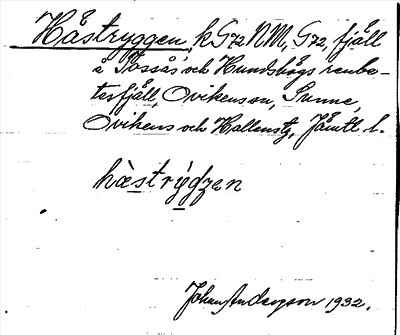 Håstryggen, k G72 NM, G72, fjäll
å Tossås och Hundshögs renbe-
tesfjäll, Ovikens sn, Sunne,
Ovikens och Hallens tg, Jämtl. l.
hæ̀strỳdzen
Johan Anderson 1932.